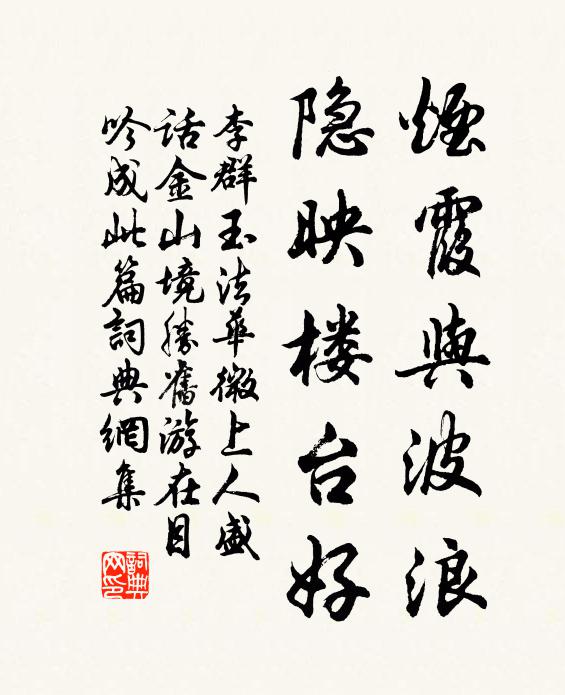 煙霞與波浪
隐映楼台好
李群玉法华微上人盛
话金山境勝舊游在目
吟成此篇詞典網集
詞典
网印